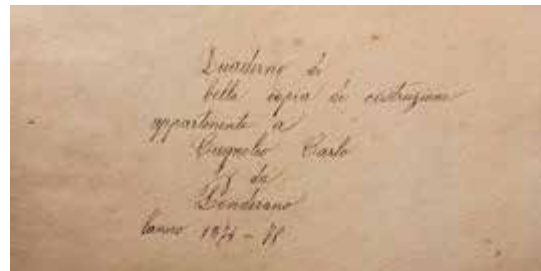 Quaderno di
bella copia di costruzione
appartenente a
Cugnolio Carlo
da
Ponderano
l'anno 1974 - 78